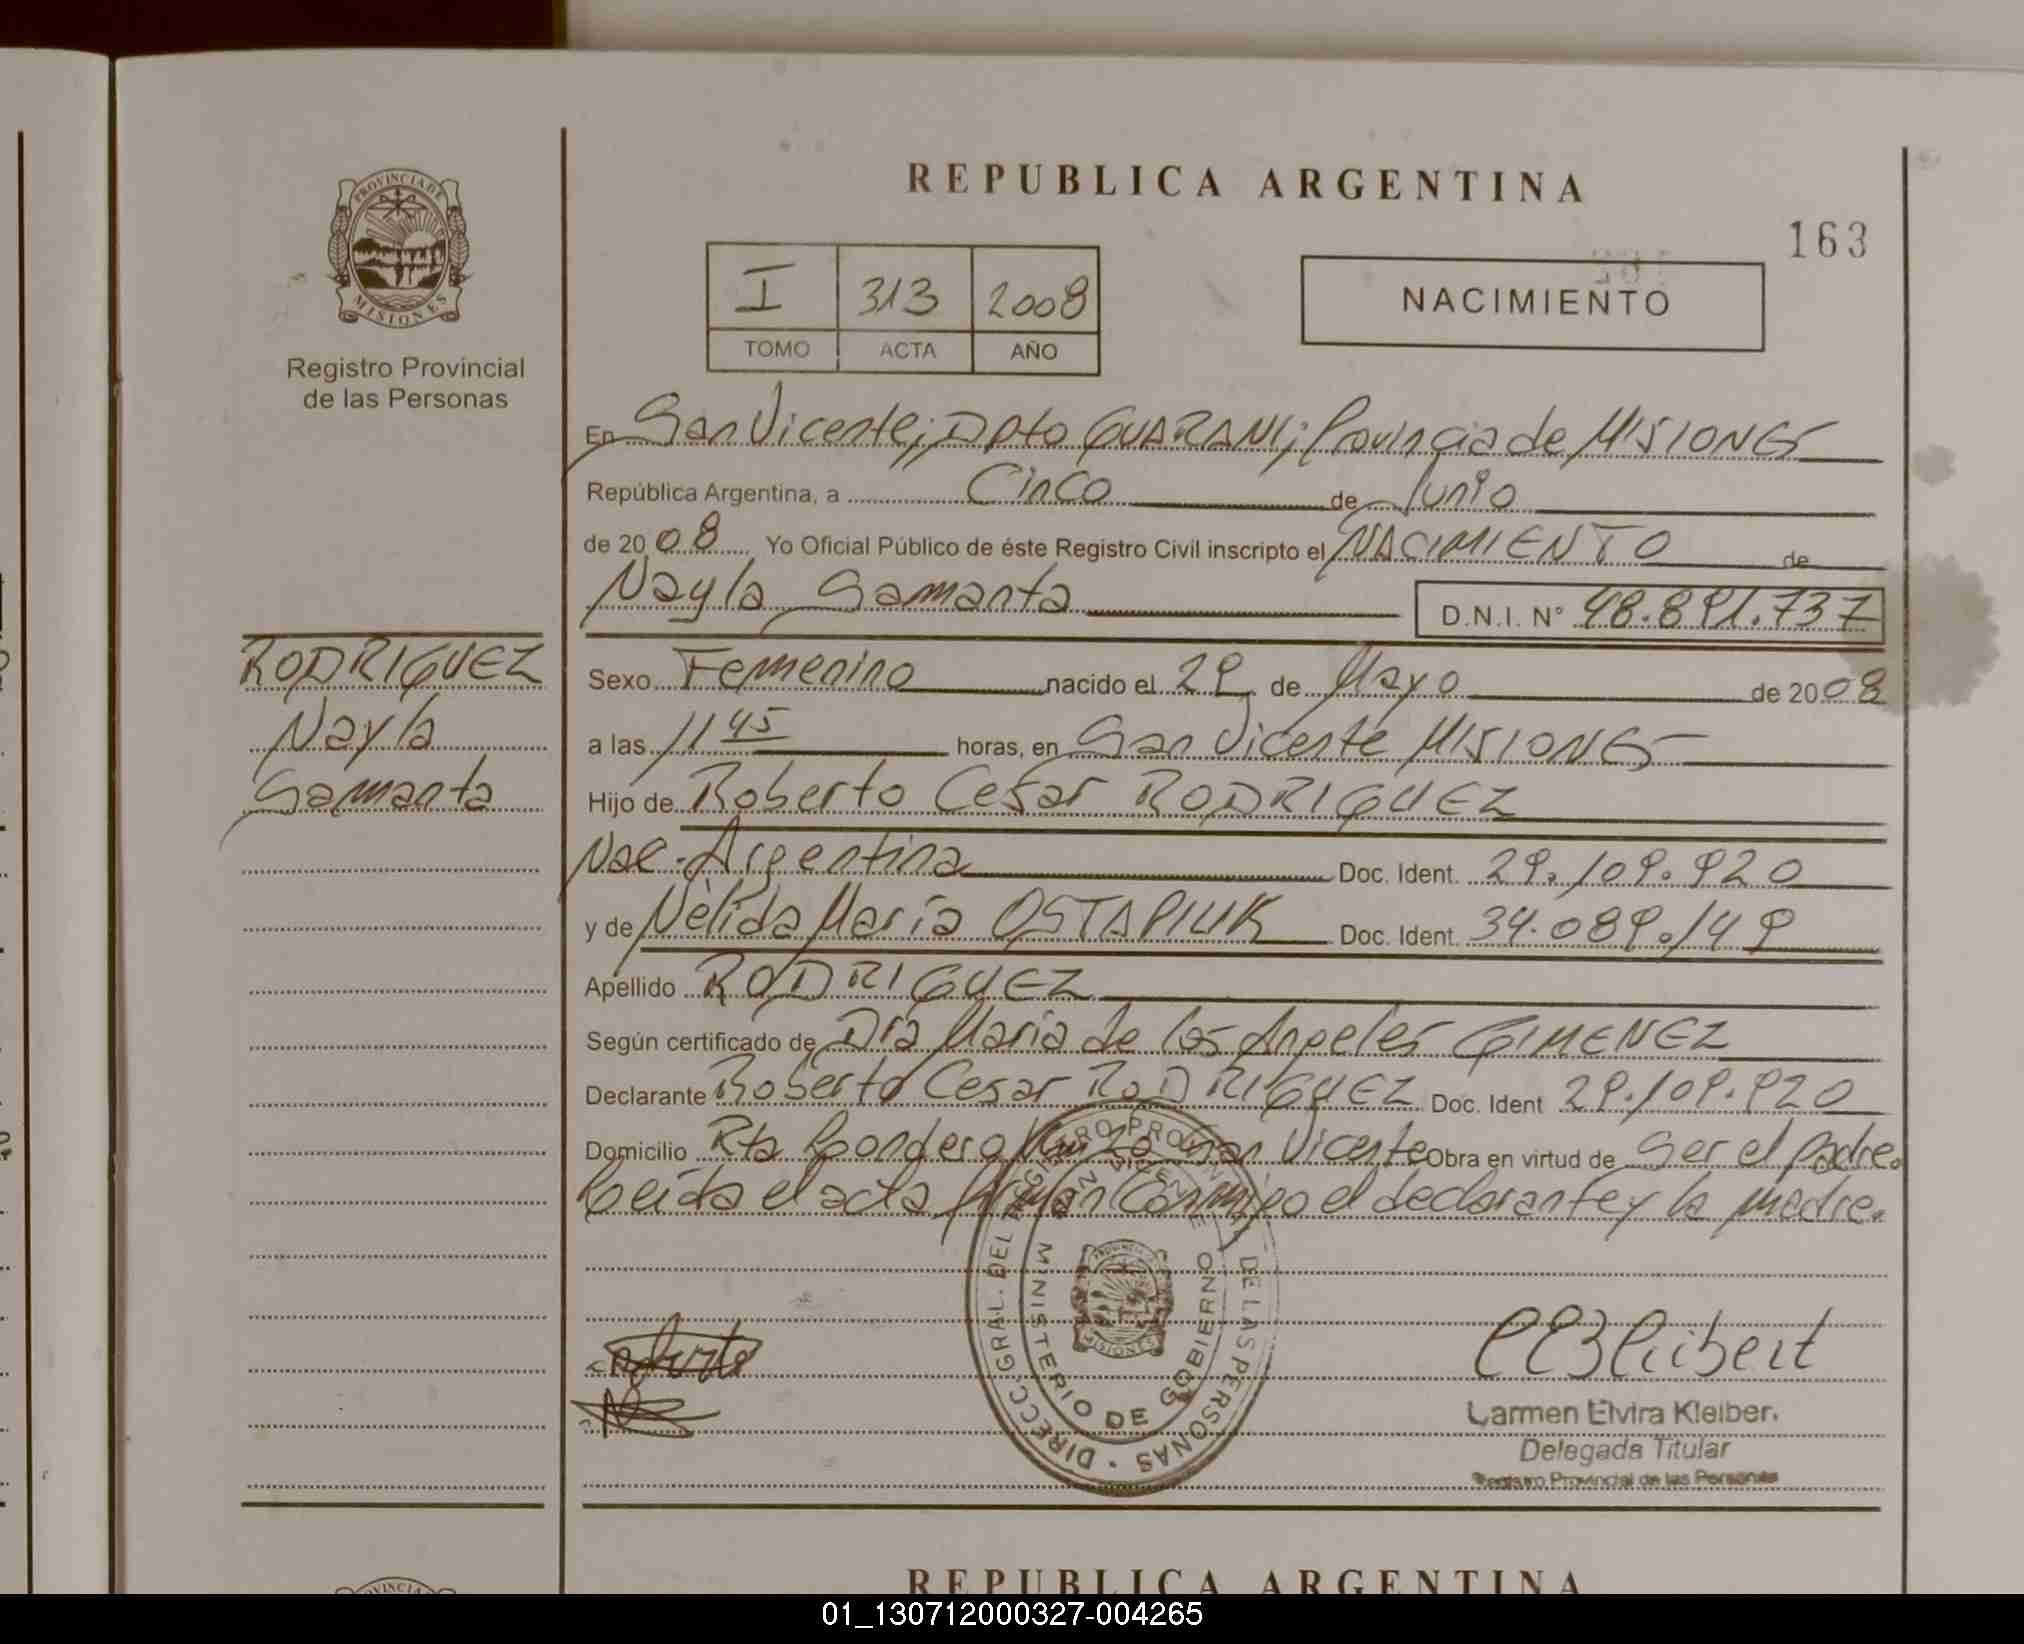 PROVINCIA DE
MISIONES
Registro Provincial
de las Personas
RODRIGUEZ
Nayla
Samanta
REPUBLICA ARGENTINA
163
I 313 2008
TOMO ACTA AÑO
NACIMIENTO
En San Vicente; Dpto GUARANI; Provincia de MISIONES
República Argentina, a Cinco de Junio
de 2008 Yo Oficial Público de éste Registro Civil inscripto el NACIMIENTO de
Nayla Samanta D.N.I. N° 48.891.737
Sexo Femenino nacido el 29 de Mayo de 2008
a las 11 45 horas, en San Vicente MISIONES
Hijo de Roberto Cesar RODRIGUEZ
Nac. Argentina Doc. Ident. 29.109.920
y de Nèlida María OSTAPIUK Doc. Ident. 34.089.149
Apellido RODRIGUEZ
Según certificado de Dra María de los Angeles GIMENEZ
Declarante Roberto Cesar RODRIGUEZ Doc. Ident 29.109.920
Domicilio Rta San Vicente Obra en virtud de ser el padre.
Leída el acta firman Conmigo el declarante y la madre.
DIRECC. GRAL. DEL REGISTRO PROVINCIAL DE LAS PERSONAS
SAN VICENTE
MINISTERIO DE GOBIERNO
Carmen Elvira Kleiber.
Delegada Titular
Registro Provincial de las Personas
REPUBLICA ARGENTINA
01_130712000327-004265